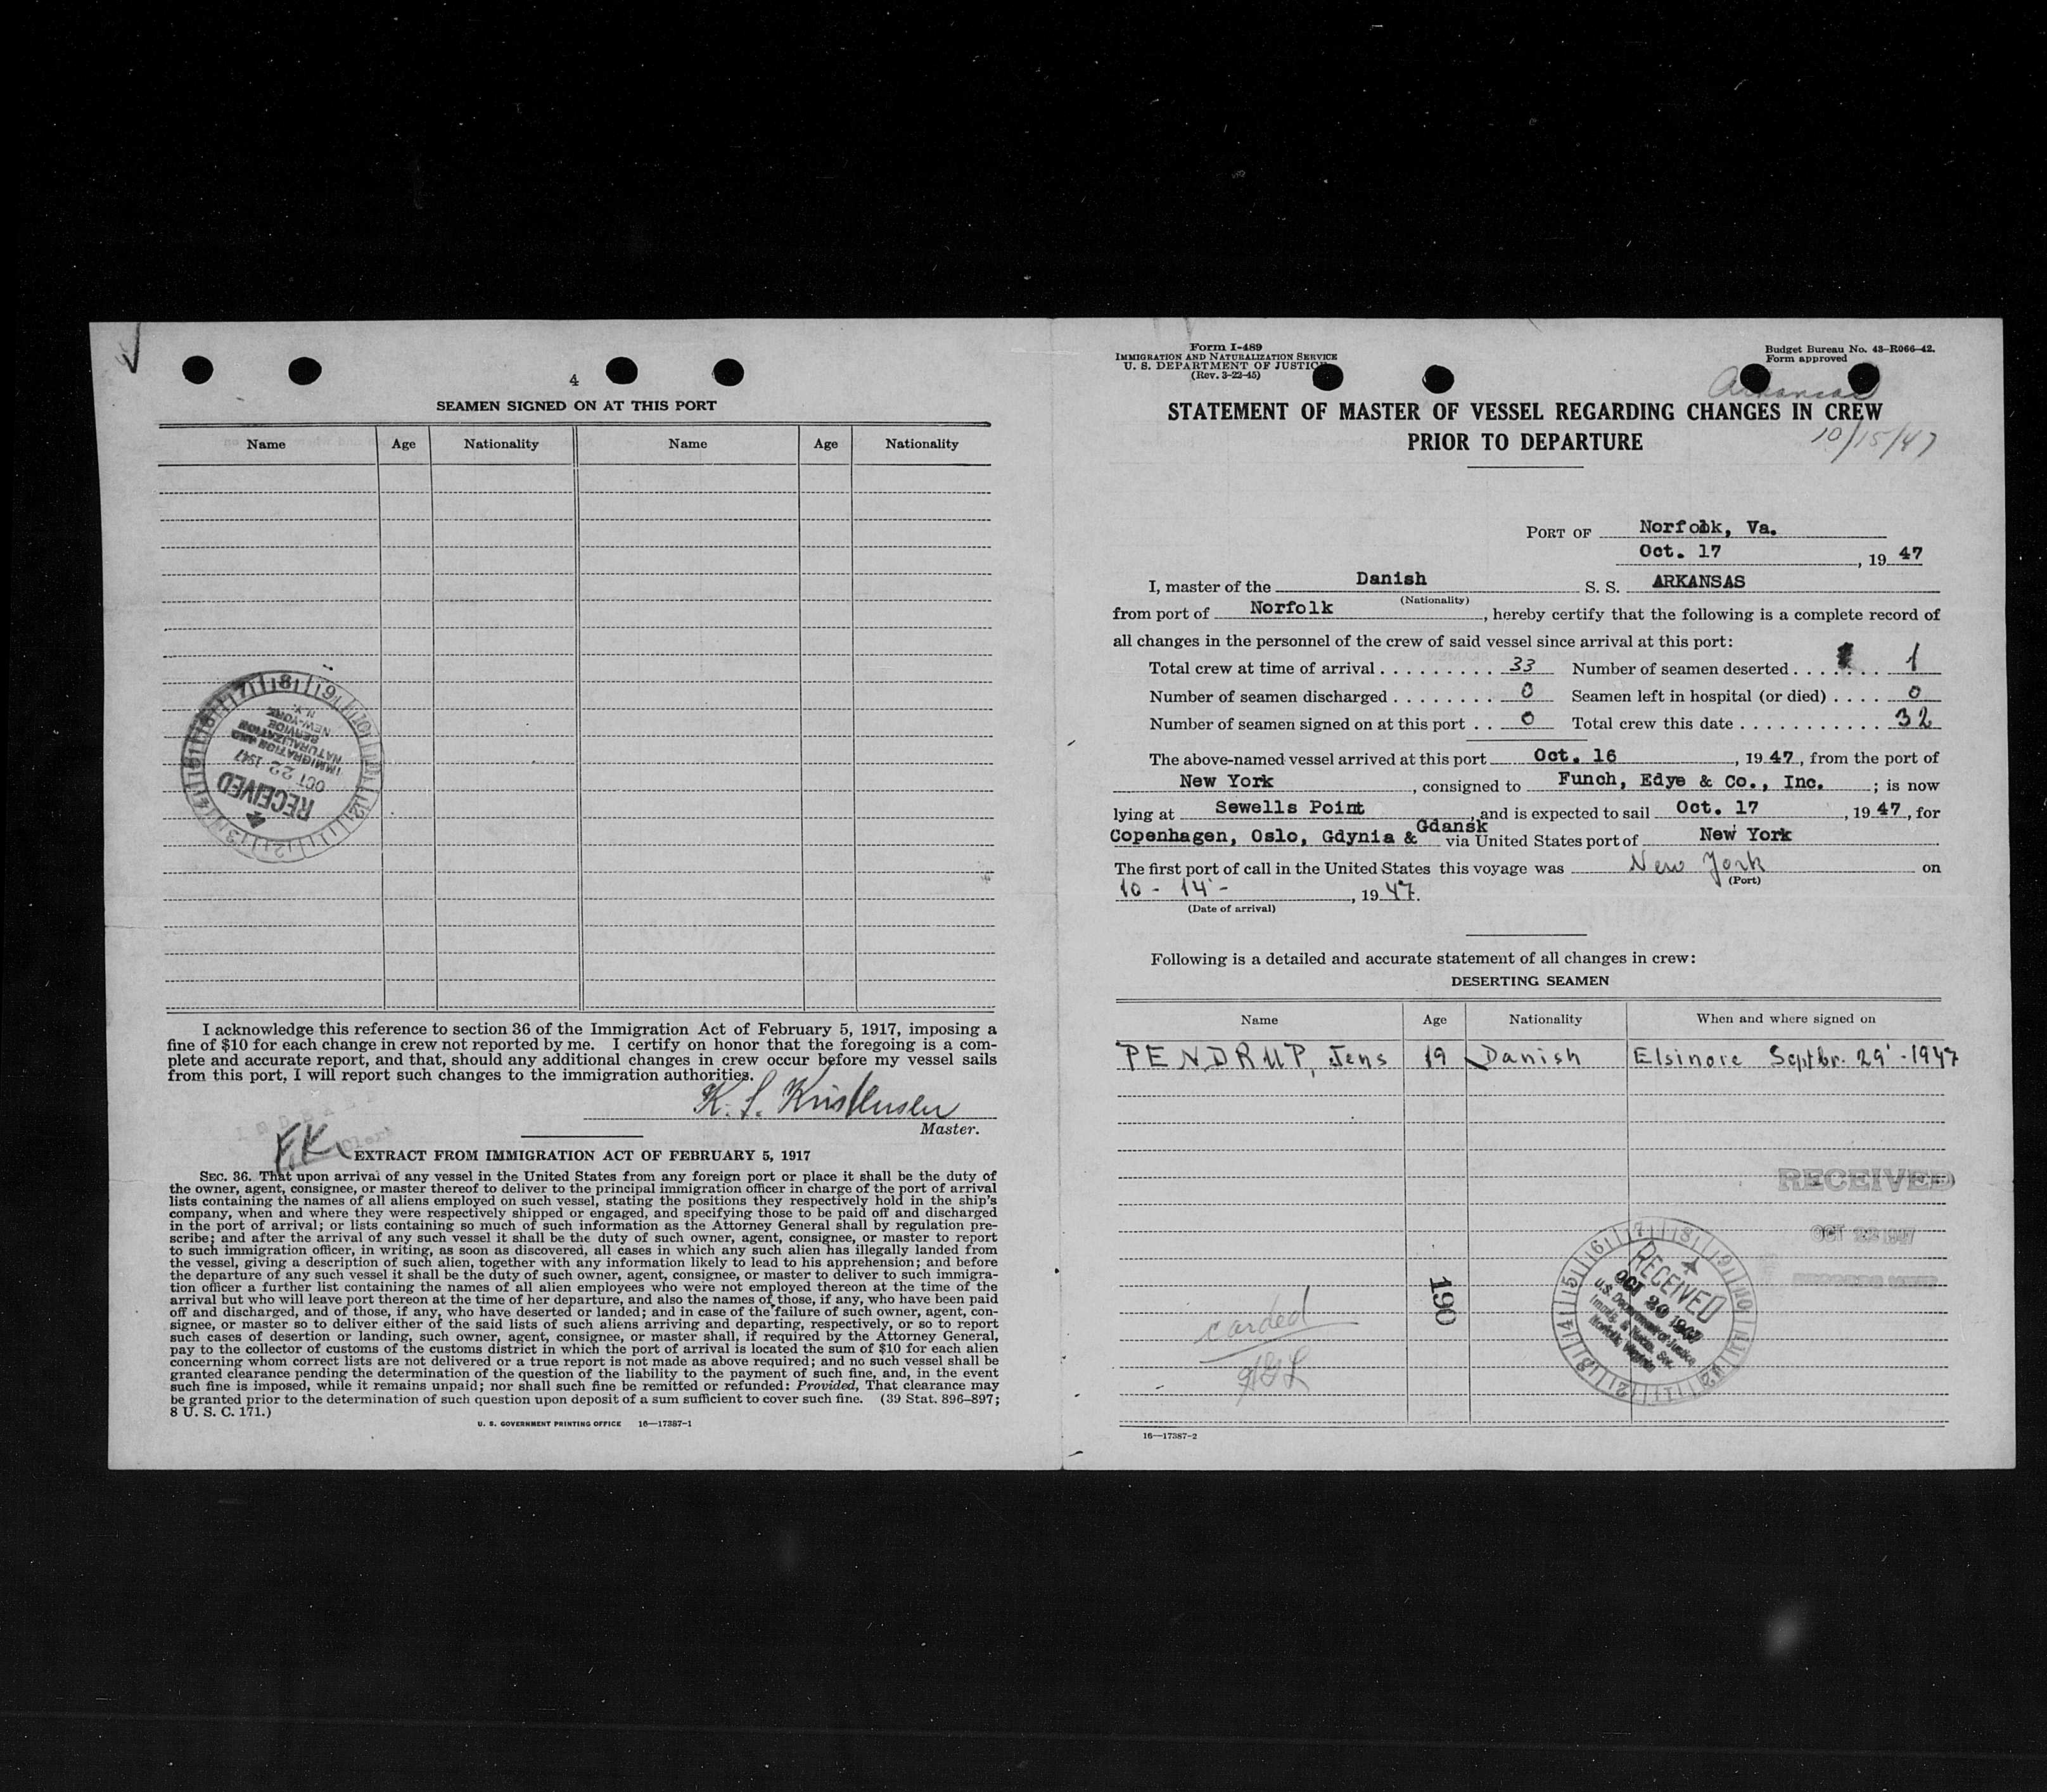 4
SEAMEN SIGNED ON AT THIS PORT
Name Age Nationality Name Age Nationality
RECEIVED
OCT 22 1947
IMMIGRATION AND
NATURALIZATION
SERVICE
NEW-YORK
N.Y.
I acknowledge this reference to section 36 of the Immigration Act of February 5, 1917, imposing a
fine of $10 for each change in crew not reported by me. I certify on honor that the foregoing is a com-
plete and accurate report, and that, should any additional changes in crew occur before my vessel sails
from this port, I will report such changes to the immigration authorities.
K. S. Kristensen
Master.
F.K.
EXTRACT FROM IMMIGRATION ACT OF FEBRUARY 5, 1917
SEC. 36. That upon arrival of any vessel in the United States from any foreign port or place it shall be the duty of
the owner, agent, consignee, or master thereof to deliver to the principal immigration officer in charge of the port of arrival
lists containing the names of all aliens employed on such vessel, stating the positions they respectively hold in the ship's
company, when and where they were respectively shipped or engaged, and specifying those to be paid off and discharged
in the port of arrival; or lists containing so much of such information as the Attorney General shall by regulation pre-
scribe; and after the arrival of any such vessel it shall be the duty of such owner, agent, consignee, or master to report
to such immigration officer, in writing, as soon as discovered, all cases in which any such alien has illegally landed from
the vessel, giving a description of such alien, together with any information likely to lead to his apprehension; and before
the departure of any such vessel it shall be the duty of such owner, agent, consignee, or master to deliver to such immigra-
tion officer a further list containing the names of all alien employees who were not employed thereon at the time of the
arrival but who will leave port thereon at the time of her departure, and also the names of those, if any, who have been paid
off and discharged, and of those, if any, who have deserted or landed; and in case of the failure of such owner, agent, con-
signee, or master so to deliver either of the said lists of such aliens arriving and departing, respectively, or so to report
such cases of desertion or landing, such owner, agent, consignee, or master shall, if required by the Attorney General,
pay to the collector of customs of the customs district in which the port of arrival is located the sum of $10 for each alien
concerning whom correct lists are not delivered or a true report is not made as above required; and no such vessel shall be
granted clearance pending the determination of the question of the liability to the payment of such fine, and, in the event
such fine is imposed, while it remains unpaid; nor shall such fine be remitted or refunded: Provided, That clearance may
be granted prior to the determination of such question upon deposit of a sum sufficient to cover such fine. (39 Stat. 896–897;
8 U. S. C. 171.)
U. S. GOVERNMENT PRINTING OFFICE 16—17387-1
Form I-489
IMMIGRATION AND NATURALIZATION SERVICE
U. S. DEPARTMENT OF JUSTICE
(Rev. 3-22-45)
Budget Bureau No. 43-R066-42.
Form approved
Arkansas
STATEMENT OF MASTER OF VESSEL REGARDING CHANGES IN CREW
PRIOR TO DEPARTURE
10/15/47
PORT OF Norfolk, Va.
Oct. 17, 19 47
I, master of the Danish S. S. ARKANSAS
(Nationality)
from port of Norfolk, hereby certify that the following is a complete record of
all changes in the personnel of the crew of said vessel since arrival at this port:
Total crew at time of arrival . . . . . . . . . . 33 Number of seamen deserted . . . . . . . 1
Number of seamen discharged . . . . . . . . 0 Seamen left in hospital (or died) . . . . 0
Number of seamen signed on at this port . . 0 Total crew this date . . . . . . . . . . . 32
The above-named vessel arrived at this port Oct. 16, 19 47, from the port of
New York, consigned to Funch, Edye & Co., Inc. ; is now
lying at Sewells Point, and is expected to sail Oct. 17, 19 47, for
Copenhagen, Oslo, Gdynia & Gdansk via United States port of New York
The first port of call in the United States this voyage was New York on
(Port)
10 - 14 -, 19 47.
(Date of arrival)
Following is a detailed and accurate statement of all changes in crew:
DESERTING SEAMEN
Name Age Nationality When and where signed on
PENDRUP, Jens 19 Danish Elsinore Septbr. 29' - 1947
RECEIVED
OCT 22 1947
190
RECEIVED
OCT 20 1947
U.S. Department of Justice
Immig. & Natzn. Ser.
Norfolk, Virginia
carded
16—17387-2